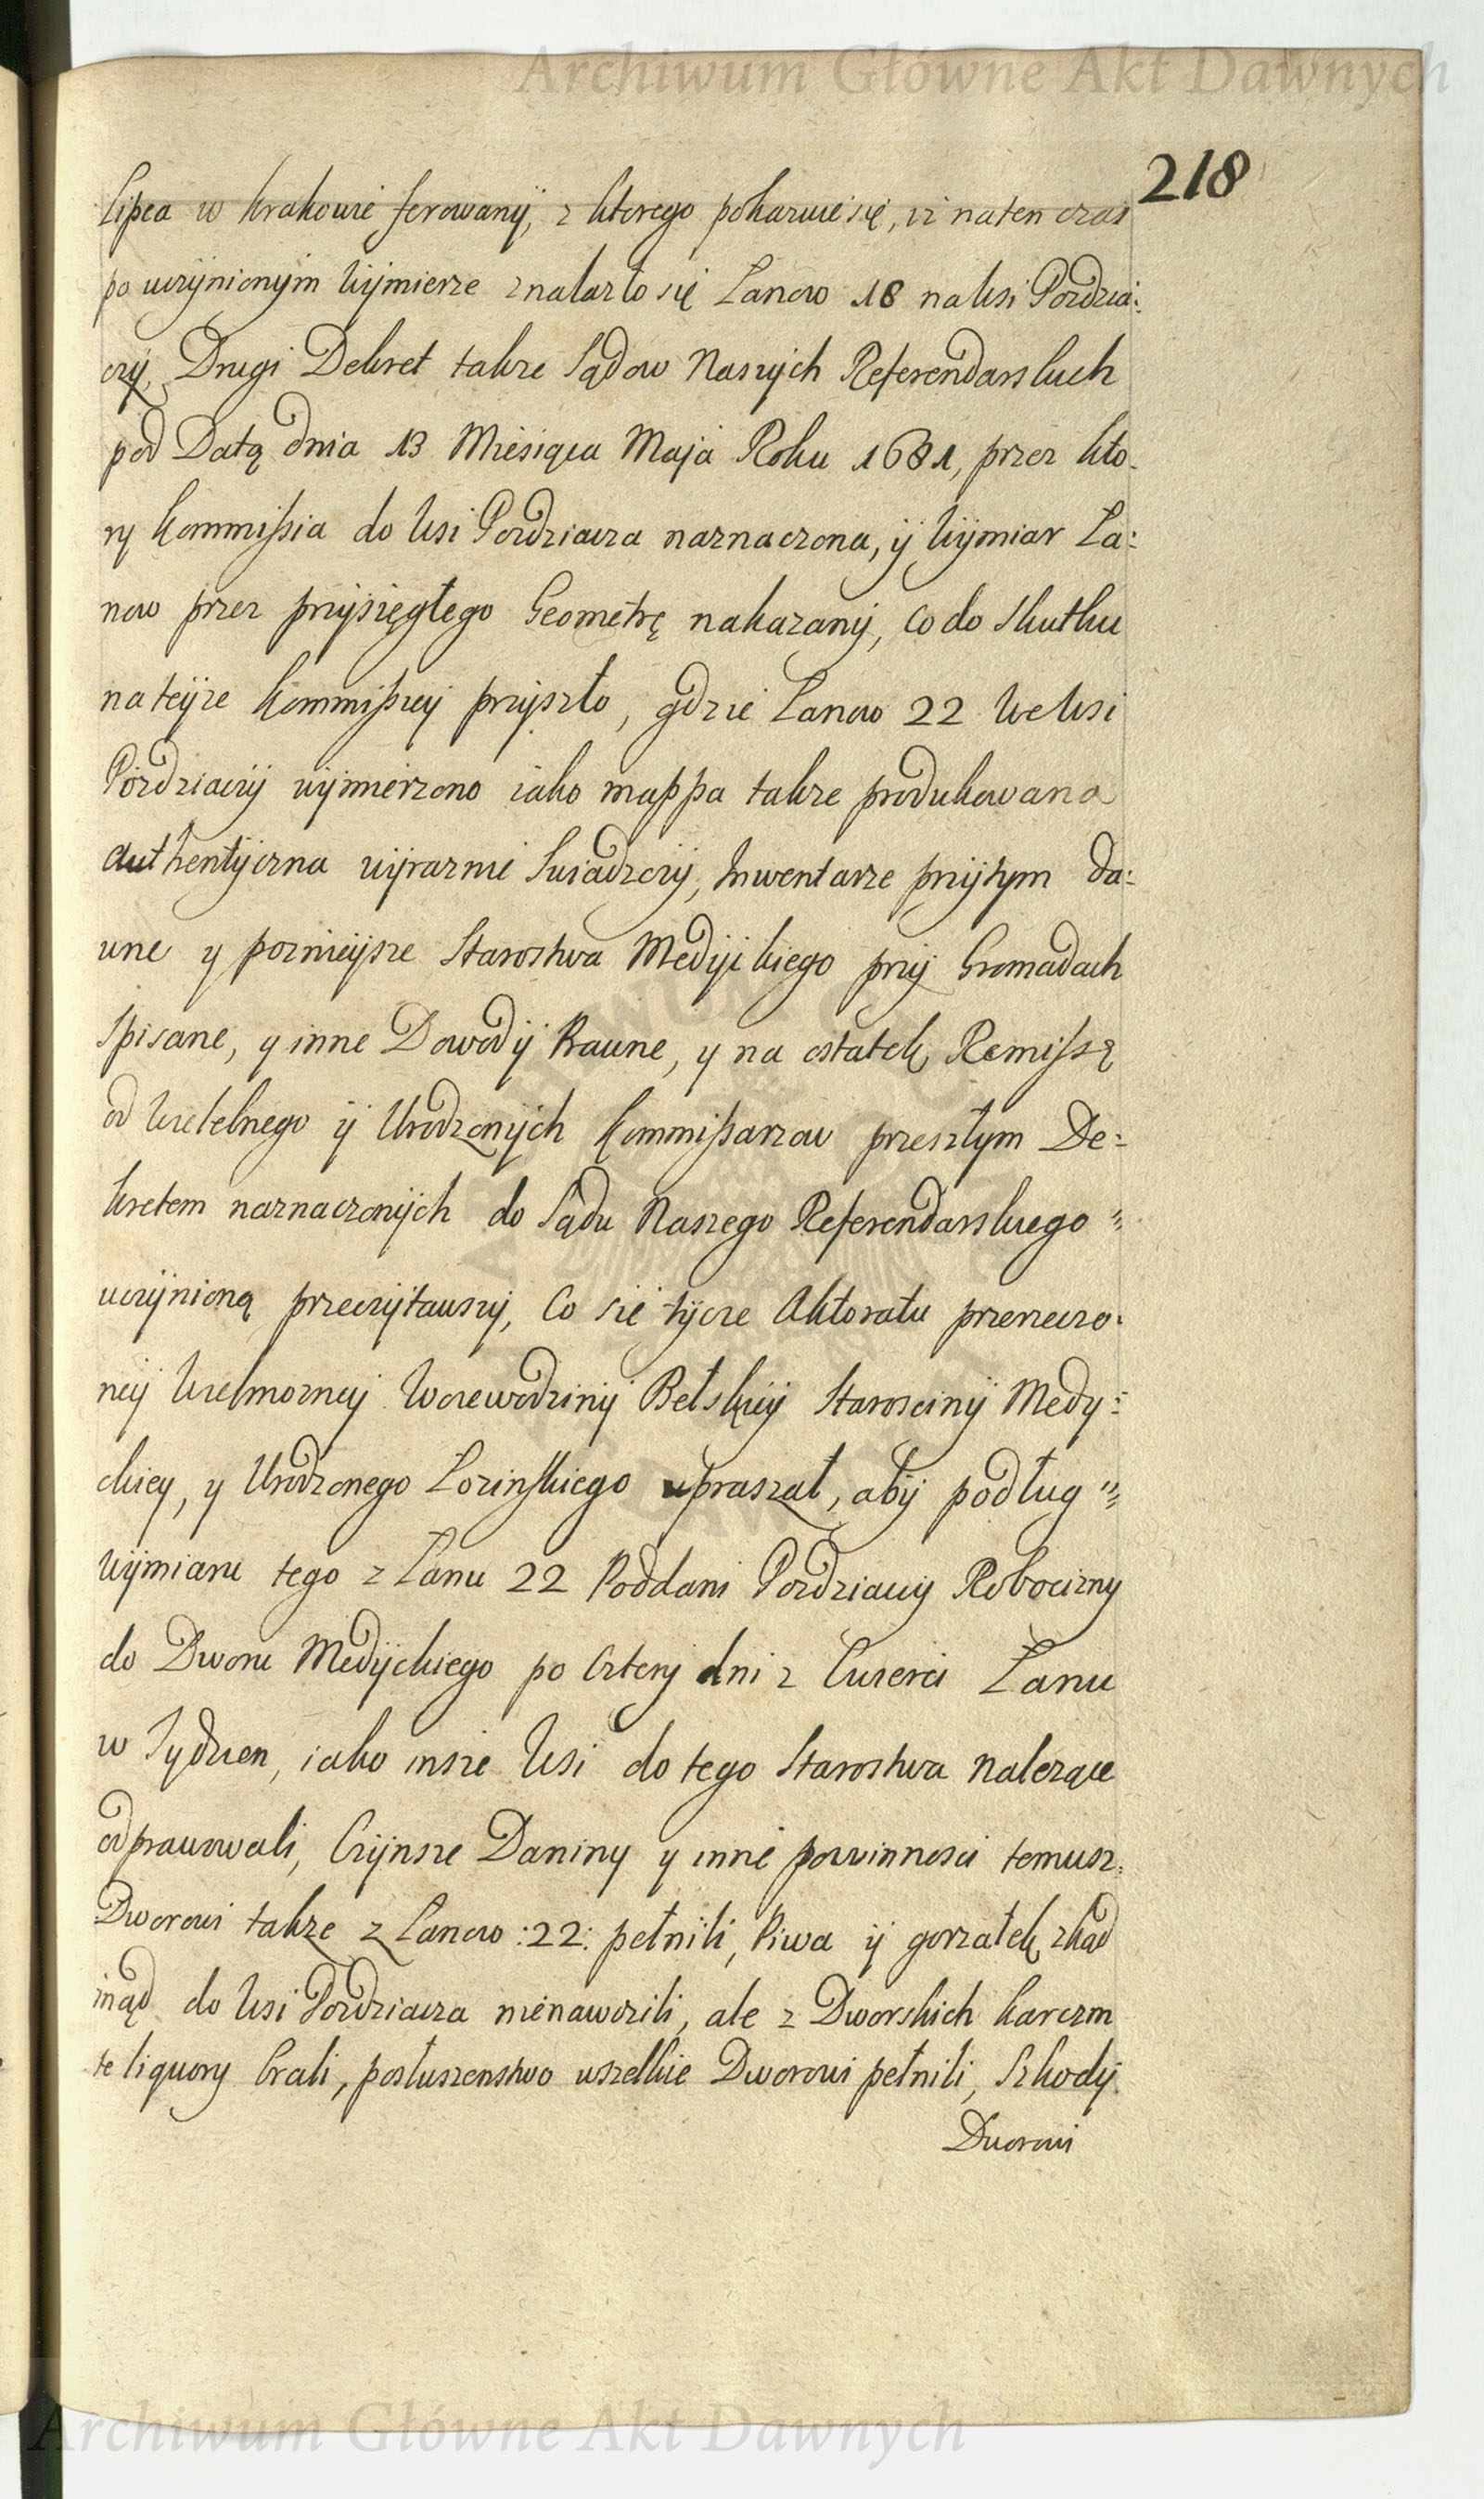 Archiwum Główne Akt Dawnych
218
Lipca w Krakowie ferowany, z ktorego pokazuie się, iz naten czas
po uczynionym wymierze znalazło się Łanow 18 na wsi Pozdzia:
czy, Drugi Dekret takze Sądow Naszych Referendarskich
pod Datą dnia 13 Miesiąca Maja Roku 1681, przez kto-
ry Kommissia do wsi Pozdziacza naznaczona, y wymiar Ła:
now przez przysięgłego Geometrę nakazany, co do skutku
na teyze Kommissyi przyszło, gdzie Łanow 22 we wsi
Pozdziaczy wymierzono iako mappa takze produkowana
authentyczna wyraznie swiadczy, Inwentarze przytym da:
wne y poznieysze Starostwa Medyckiego przy Gromadach
spisane, y inne Dowody Prawne, y na ostatek Remissę
od Wielebnego y Urodzonych Kommissarzow przeszłym De:
kretem naznaczonych do Sądu Naszego Referendarskiego
uczynioną przeczytawszy, Co się tycze Aktoratu przerzeczo-
ney Wielmozney Woiewodziny Bełskiey Starosciny Medy:
ckiey, y Urodzonego Łozinskiego upraszał, aby podług
wymiaru tego z Łanu 22 Poddani Pozdziaccy Robocizny
do Dworu Medyckiego po Cztery dni z Cwierci Łanu
w Tydzien, iako insze Wsi do tego Starostwa nalezące
odprawowali, Czynsze Daniny y inne powinnosci temusz
Dworowi takze z Łanow :22: pełnili, Piwa y gorzałek zkąd
inąd do Wsi Pozdziacza nienawozili, ale z Dworskich karczm
te liquory brali, posłuszenstwo wszelkie Dworowi pełnili, Szkody
Dworowi
Archiwum Główne Akt Dawnych